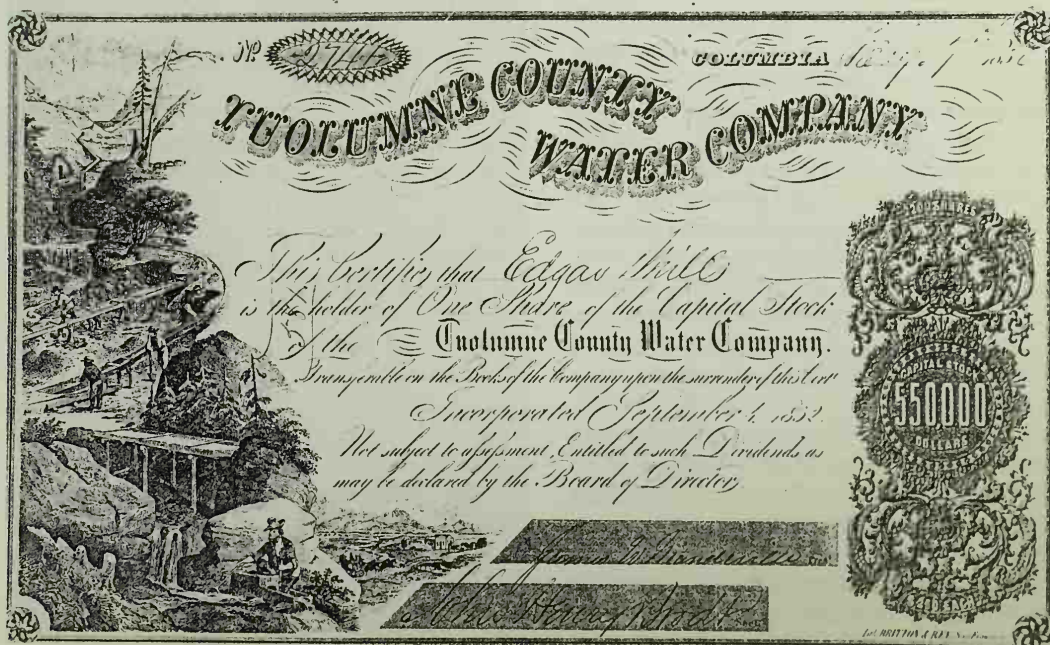 Nº 2744
COLUMBIA
TUOLUMNE COUNTY
WATER COMPANY
This Certifies that Edgar Mills
is the holder of One Share of the Capital Stock
of the Tuolumne County Water Company.
Transferable on the Books of the Company upon the surrender of this Cert
Incorporated September 4, 1852.
Not subject to assessment Entitled to such Dividends as
may be declared by the Board of Directors
SHARES
CAPITAL STOCK
550000
DOLLARS
EACH
Lith. BRITTON & REY San Fran